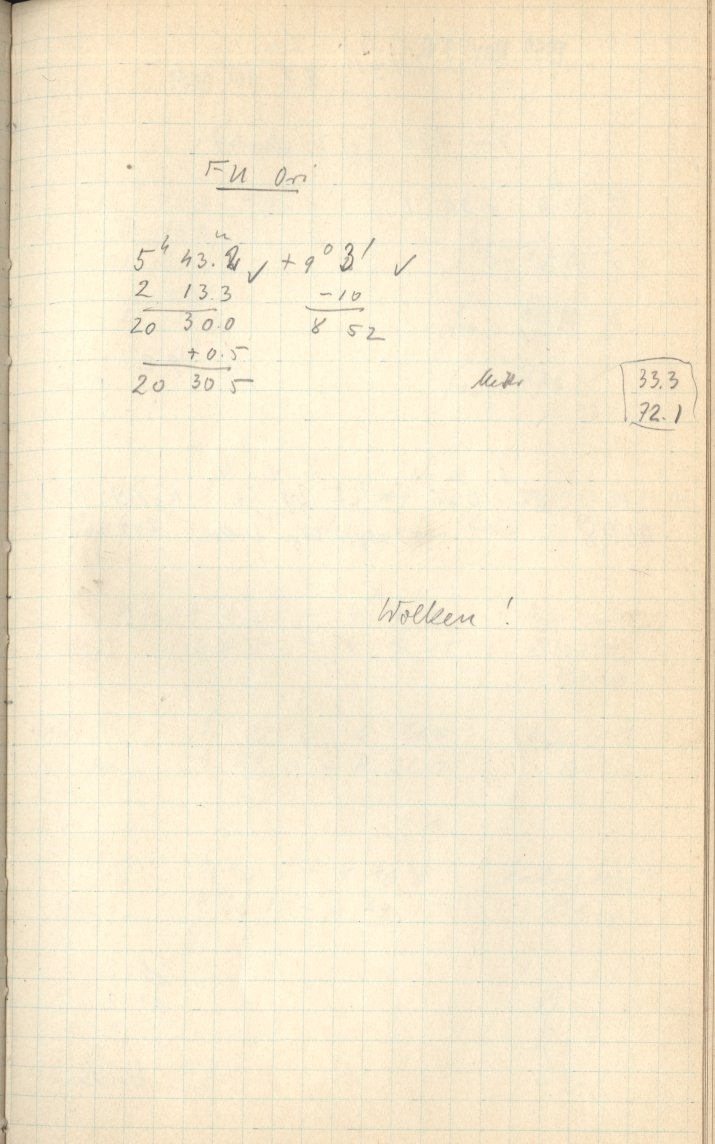 FU Ori
5ʰ 43.ᵐ ✓ +9° 3' ✓
2 13.3 -10
20 30.0 8 52
+0.5
20 30 5
33.3
72.1
Wolken !